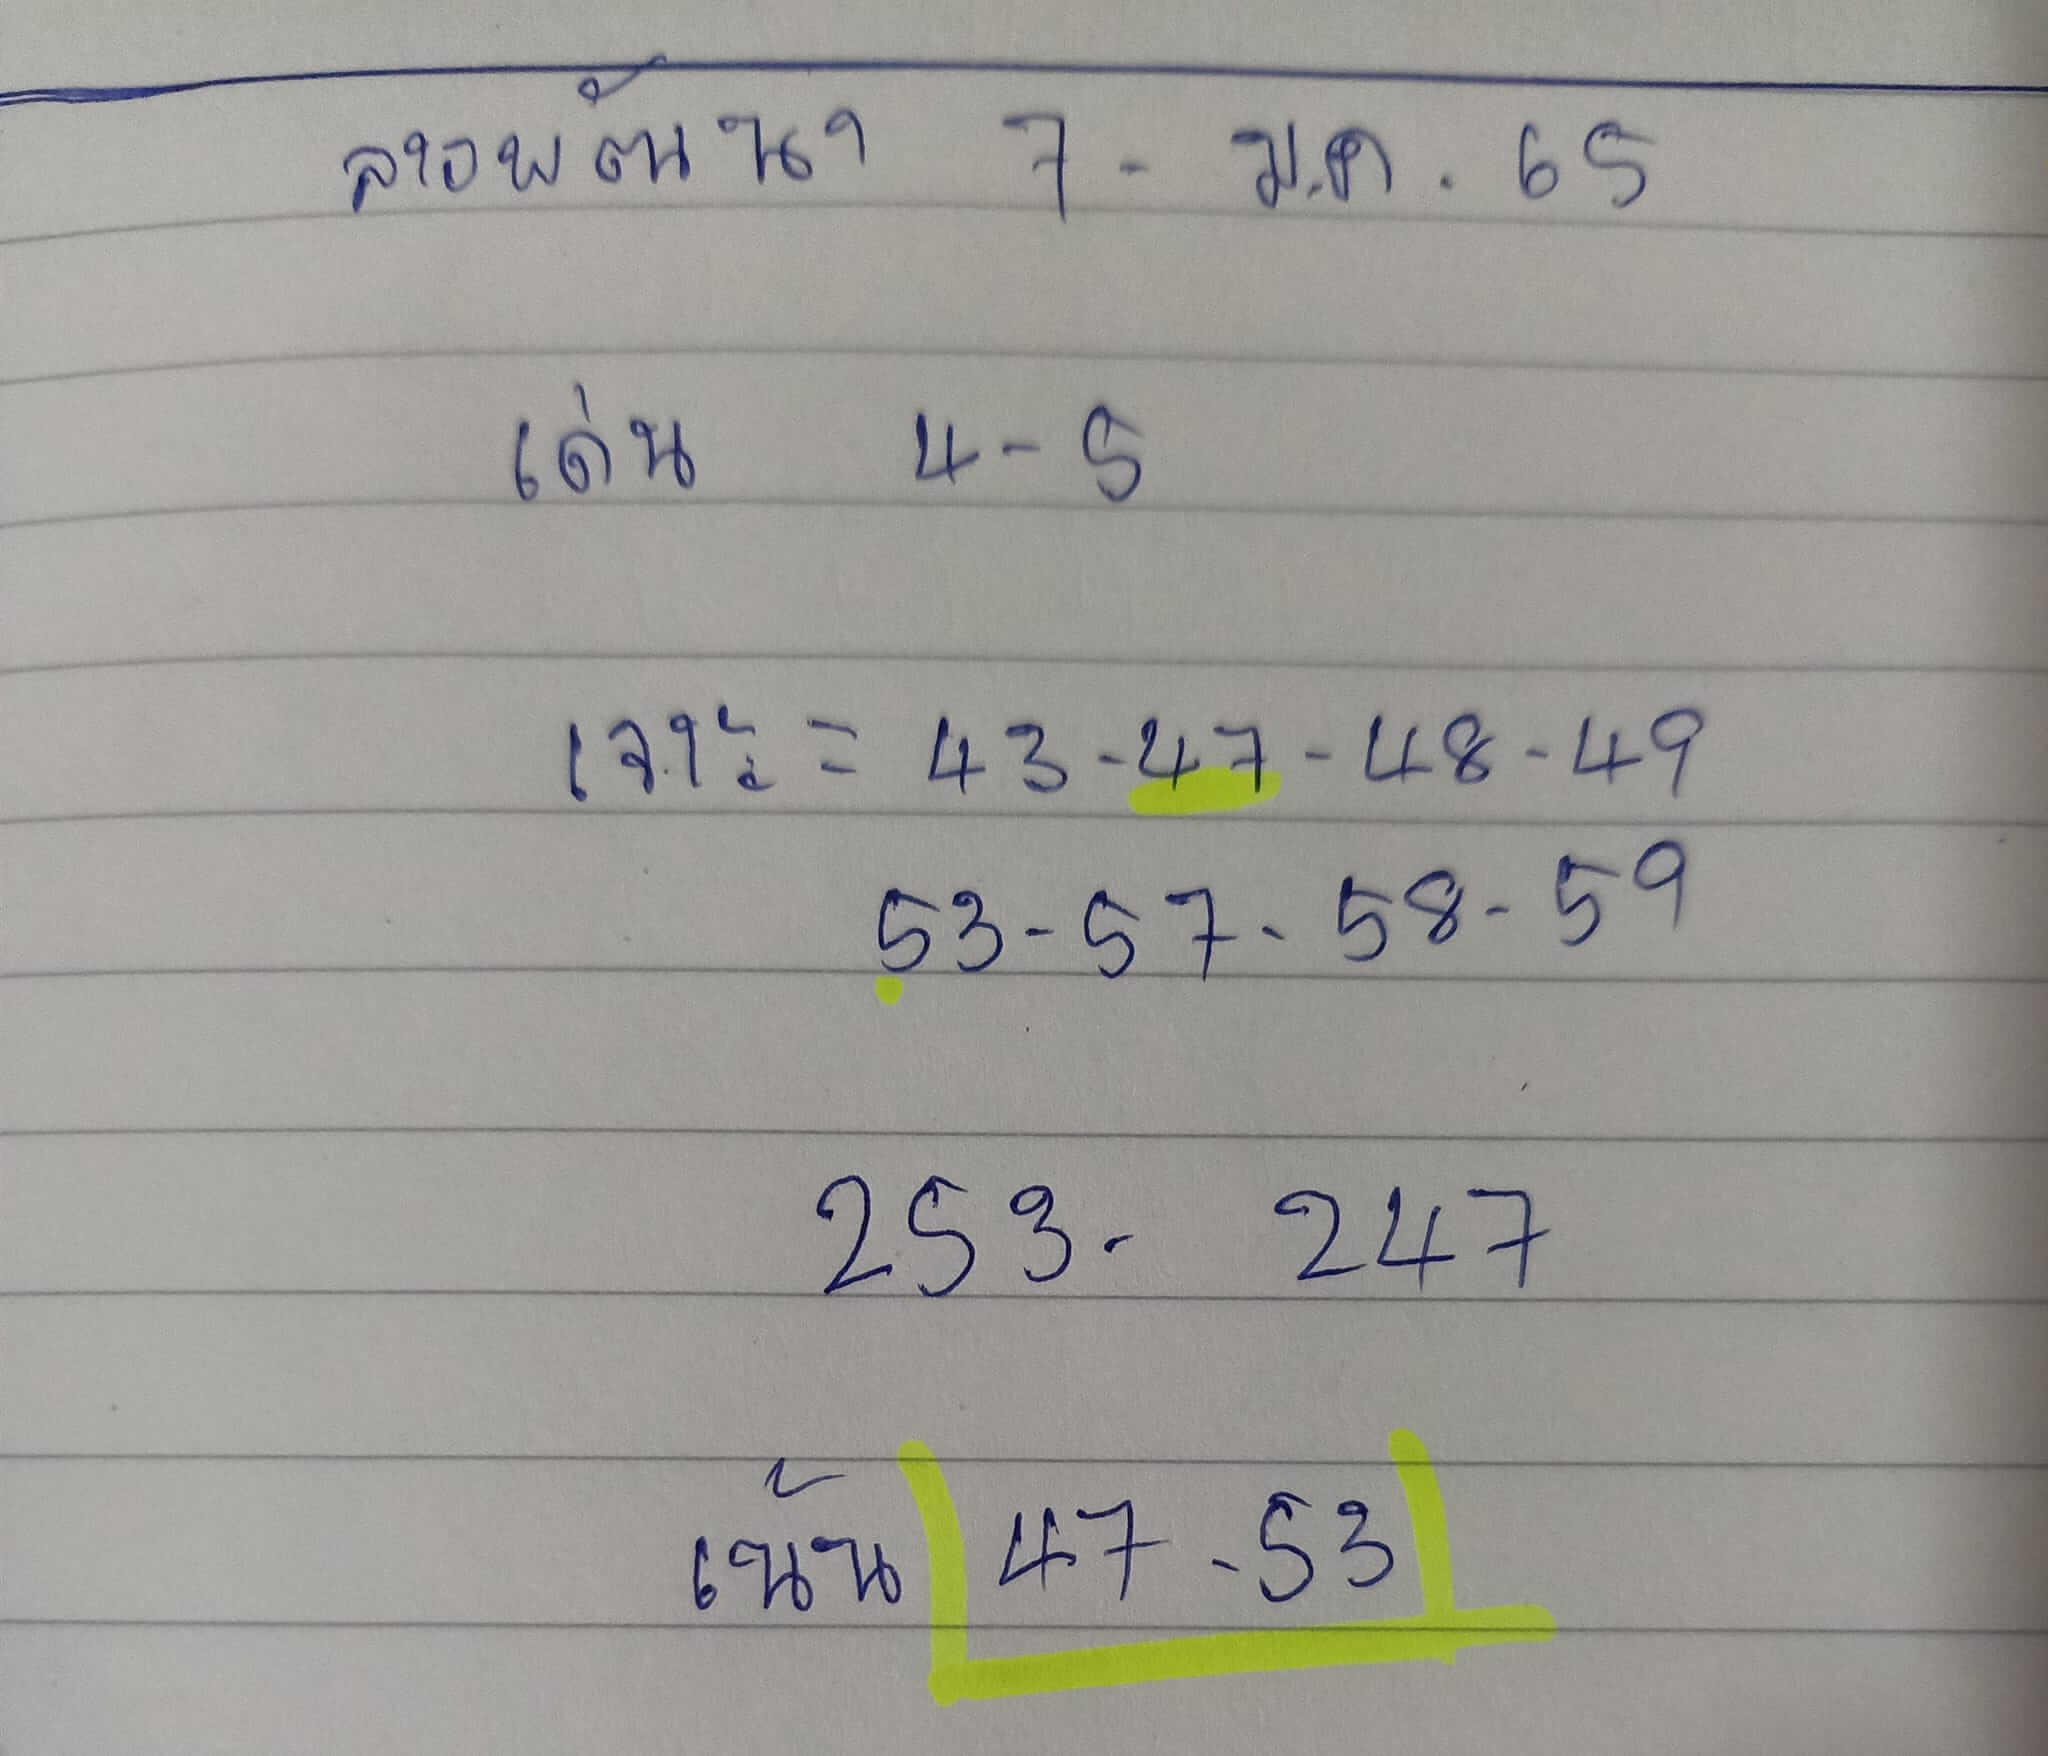 ลาวพัฒนา 7 - ม.ค. 65
เด่น 4-5
เจาะ = 43-47-48-49
53-57-58-59
253- 247
เน้น 47-53